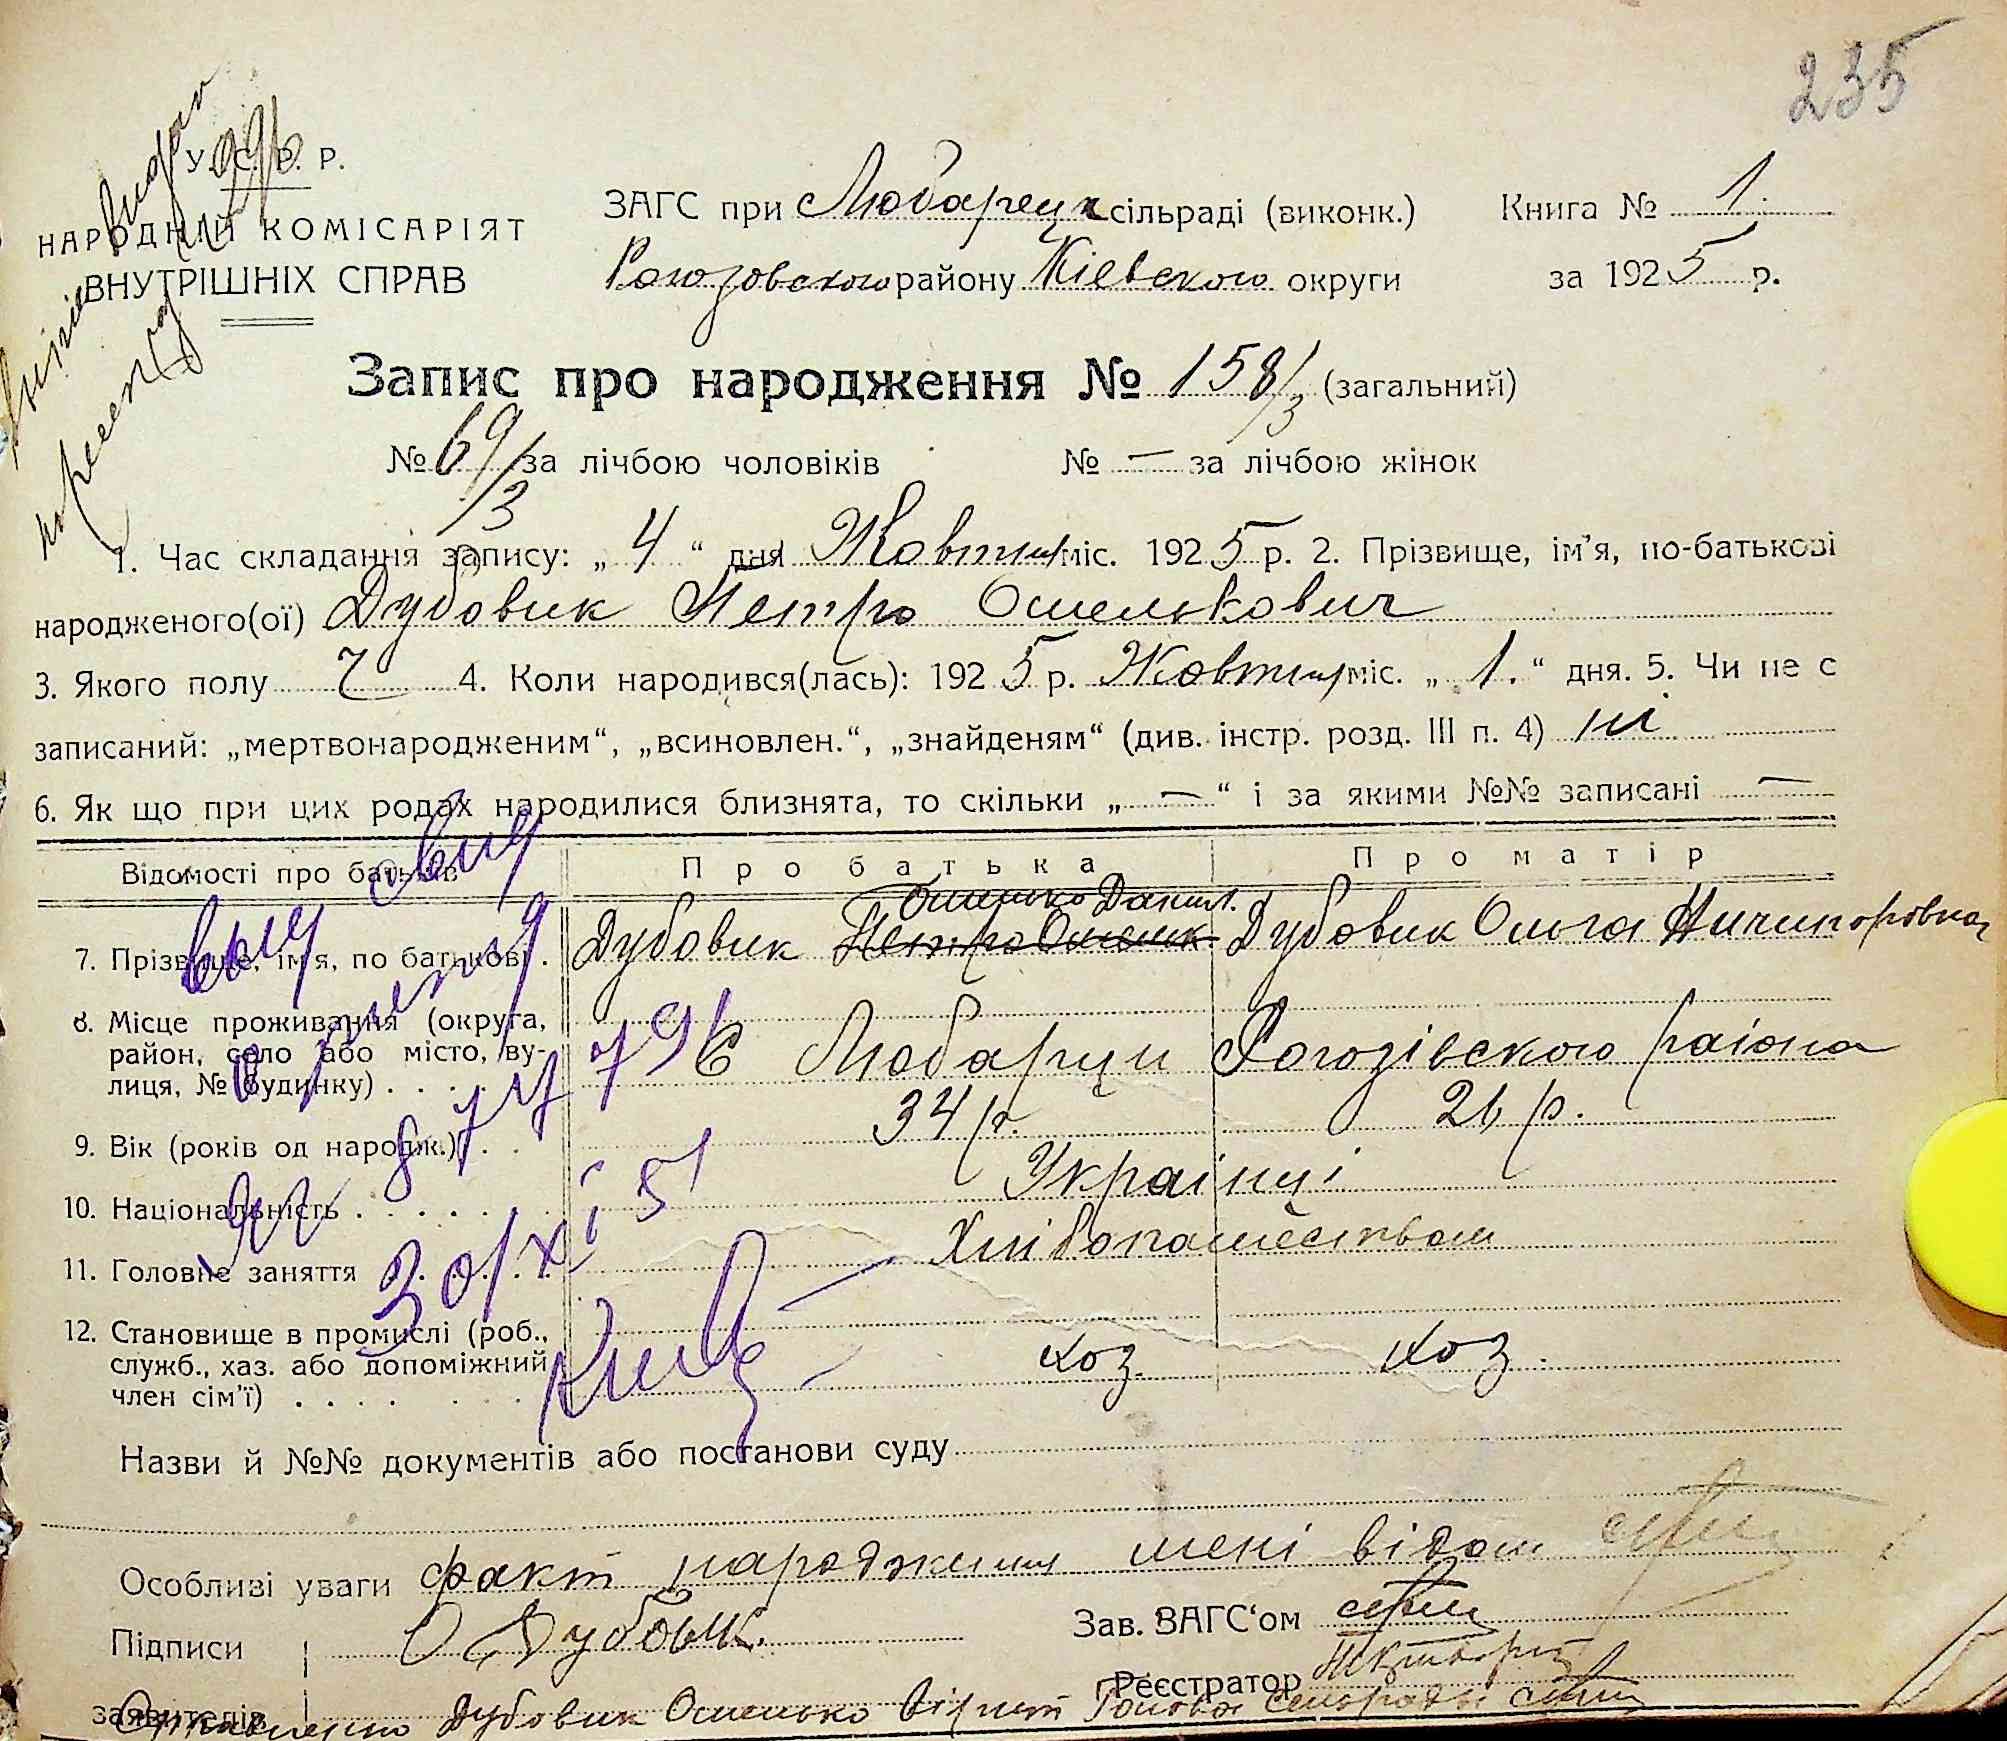 235
У.С.Р.Р.
НАРОДНИЙ КОМІСАРІЯТ
ВНУТРІШНІХ СПРАВ
ЗАГС при Любарецк сільраді (виконк.)
Рогозовского району Кіевского округи
Книга № 1.
за 1925 р.
Запис про народження № 158/3 (загальний)
№ 69/3 за лічбою чоловіків № — за лічбою жінок
1. Час складання запису: „ 4 “ дня Жовтня міс. 1925 р. 2. Прізвище, ім’я, по-батькові
народженого(ої) Дубовик Петро Омелькович
3. Якого полу ч 4. Коли народився(лась): 1925 р. Жовтня міс. „ 1. “ дня. 5. Чи не є
записаний: „мертвонародженим“, „всиновлен.“, „знайденям“ (див. інстр. розд. III п. 4) ні
6. Як що при цих родах народилися близнята, то скільки „ — “ і за якими №№ записані —
Відомості про батьків Про батька Про матір
Омелько Данил.
7. Прізвище, ім’я, по батькові . Дубовик Петро Омельк Дубовик Ольга Ничипоровна
8. Місце проживання (округа,
район, село або місто, ву-
лиця, № будинку) . . . . С Любарци Рогозівского раіона
9. Вік (років од народж.) . . 34 р. 26 р.
10. Національність . . . . . Українці
11. Головне заняття . . . . . Хлібопашеством
12. Становище в промислі (роб.,
служб., хаз. або допоміжний
член сім’ї) . . . . хоз. хоз.
30/XI 51
Назви й №№ документів або постанови суду
Особливі уваги факт народження мені відом
Підписи О Дубовик. Зав. ЗАГС‘ом
заявителів Реєстратор
Дубовик Омелько Голова